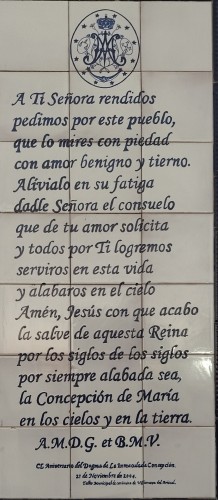 A Ti Señora rendidos
pedimos por este pueblo,
que lo mires con piedad
con amor benigno y tierno.
Alívialo en su fatiga
dadle Señora el consuelo
que de tu amor solicita
y todos por Ti logremos
serviros en esta vida
y alabaros en el cielo
Amén, Jesús con que acabo
la salve de aquesta Reina
por los siglos de los siglos
por siempre alabada sea,
la Concepción de María
en los cielos y en la tierra.
A.M.D.G. et B.M.V.
CL Aniversario del Dogma de La Inmaculada Concepción.
de Noviembre de 2004.
Taller Municipal de cerámica de